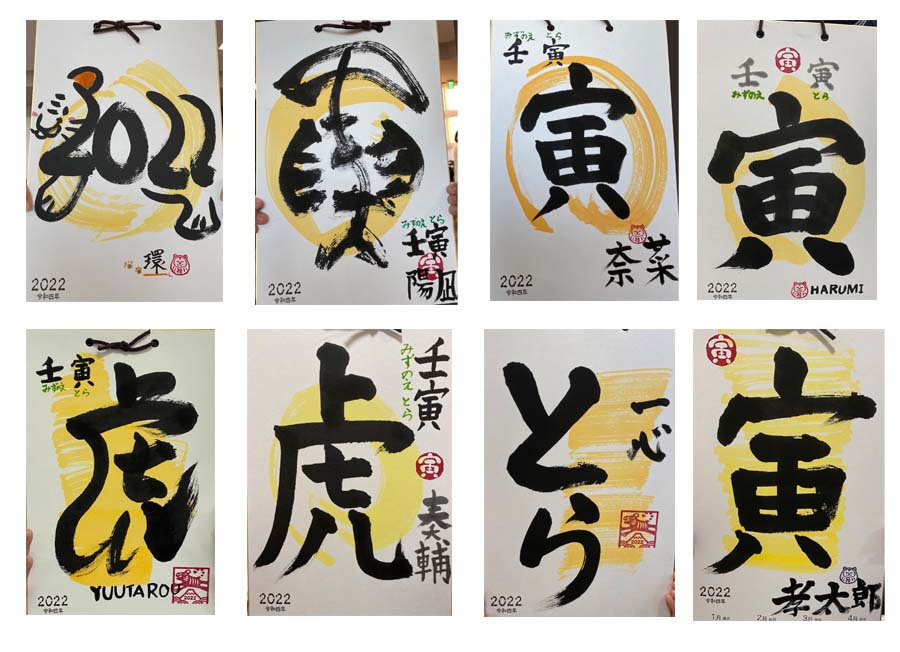 2022
環
2022
令和四年
寅
みずのえ とら
壬寅
寅
陽凪
2022
令和四年
みずのえ とら
壬寅
寅
奈菜
2022
令和四年
寅
壬 寅
みずのえ とら
寅
HARUMI
2022
令和四年
壬寅
みずのえ とら
虎
YUUTAROU
2022
2022
令和四年
壬寅
みずのえとら
虎
寅
奏輔
2022
令和四年
とら
一心
2022
2022
令和四年
寅
寅
孝太郎
2022
令和四年
1月
2月
3月
4月